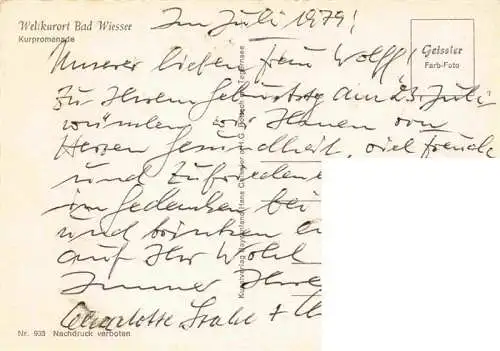 Weltkurort Bad Wiesser
Kurpromenade
Im Juli 1979!
Geissler
Farb-Foto
Unserer lieben Frau Wolff!
Zu Ihrem Geburtstag am 23. Juli
wünschen wir Ihnen von
Herzen Gesundheit, viel Freude
und Zufriedene
im Gedenken bei
und trinken
auf Ihr Wohl
Immer Ihre
Charlotte +
Nr. 933 Nachdruck verboten